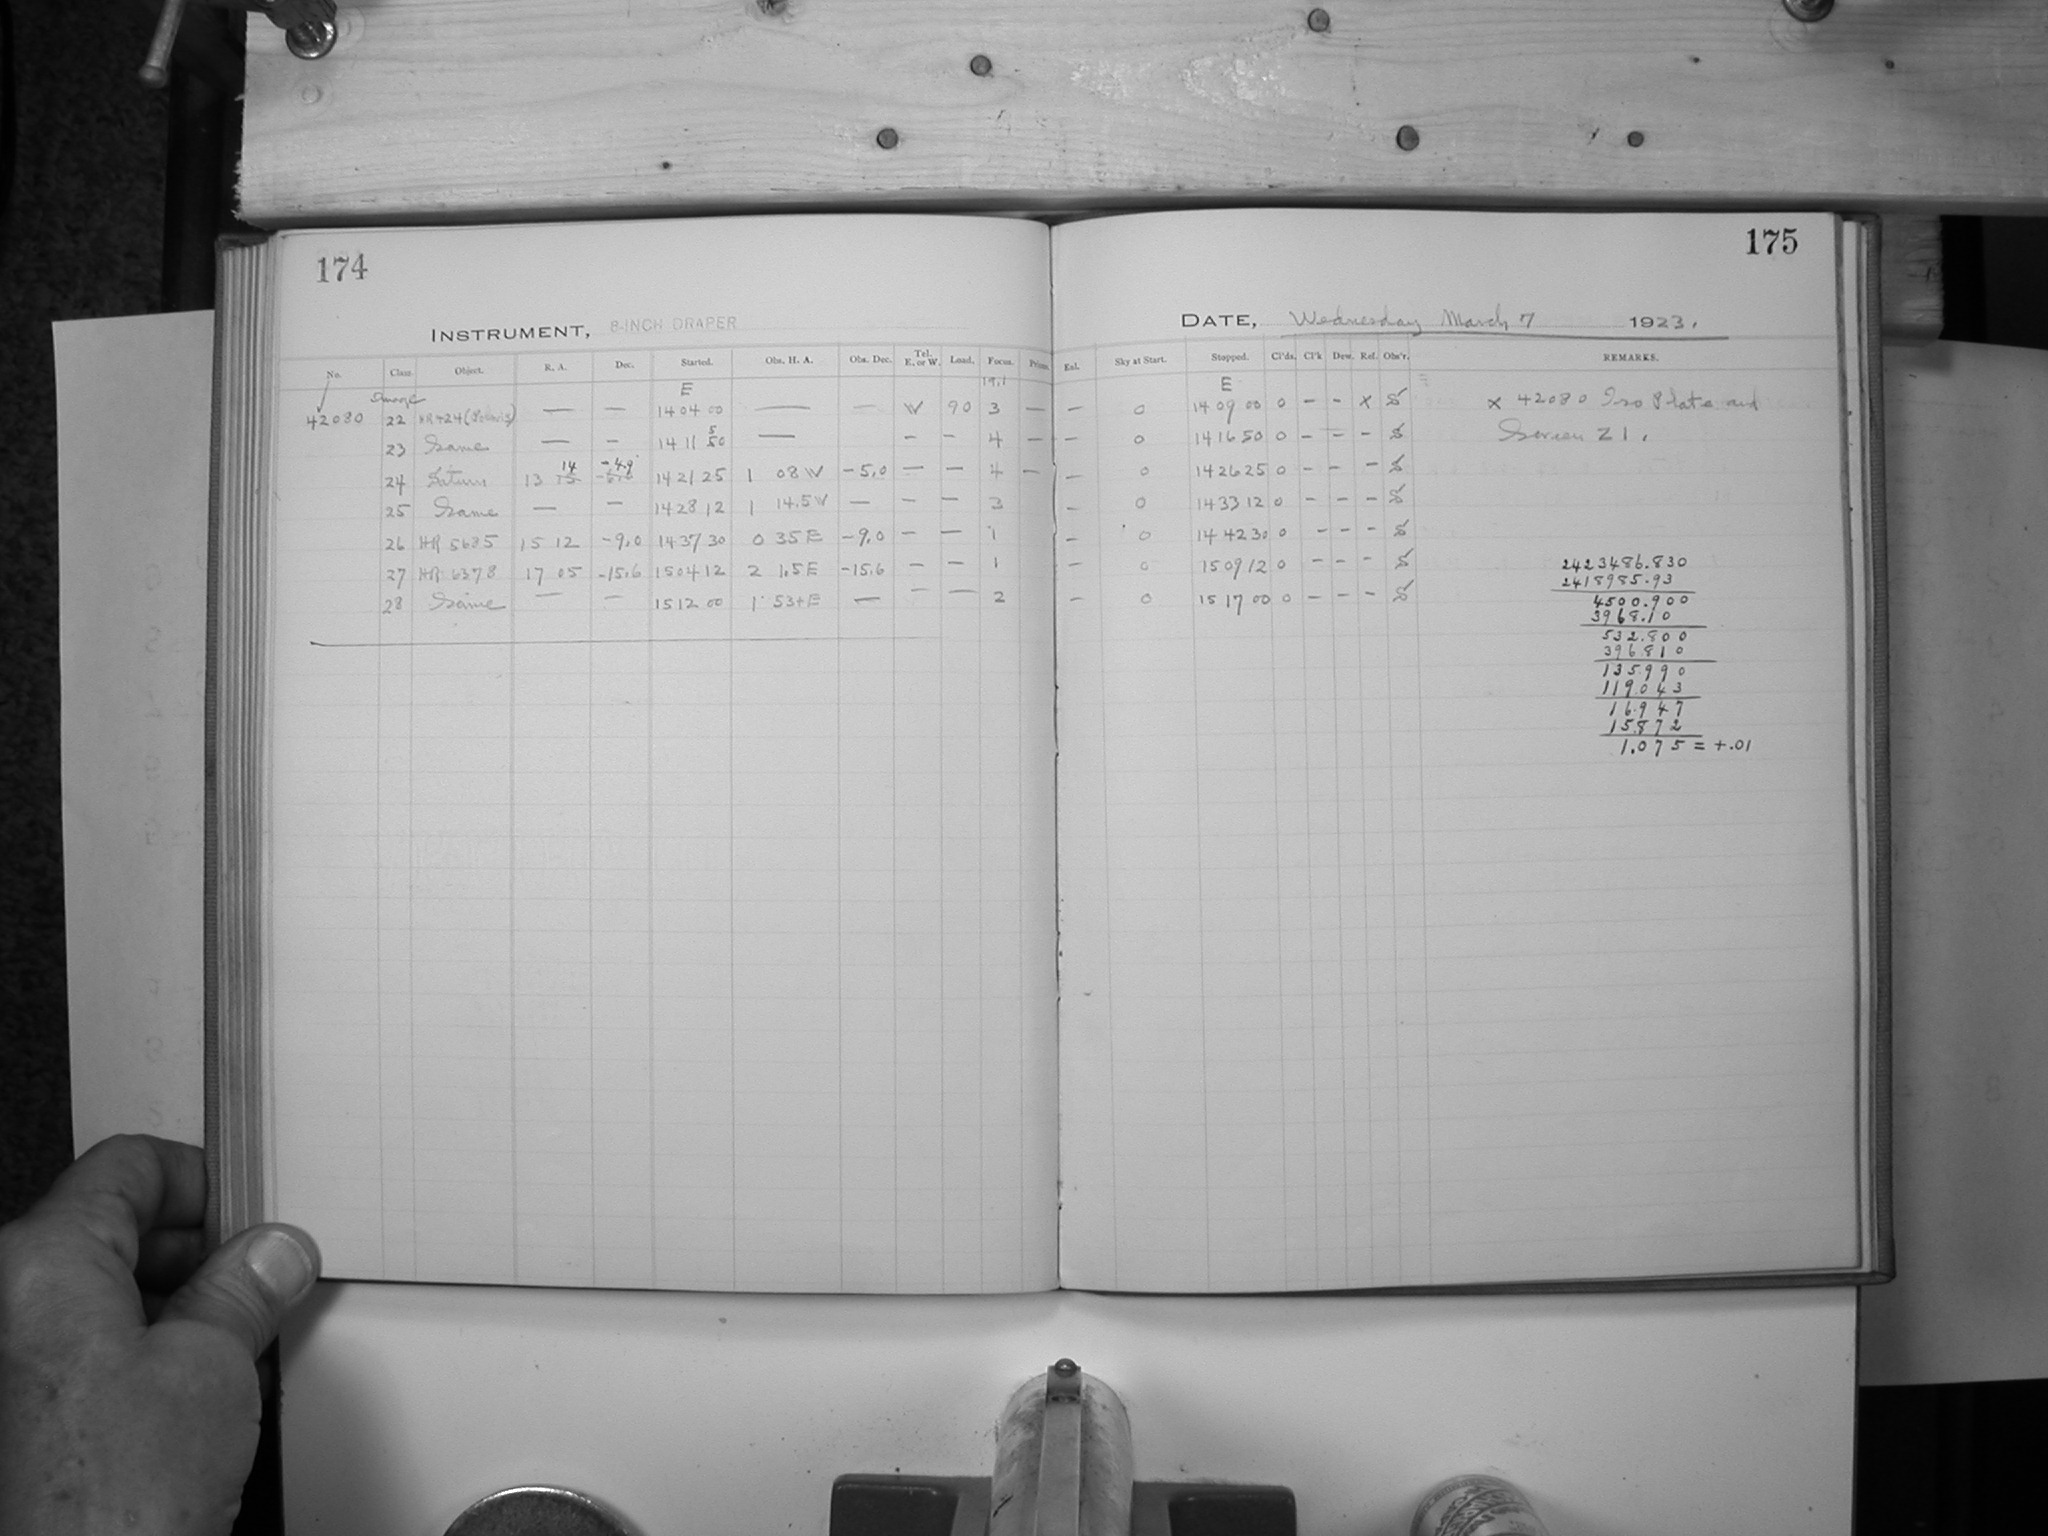 174
INSTRUMENT, 8-INCH DRAPER
No. Class. Object. R. A. Dec. Started. Obs. H. A. Obs. Dec. Tel. E. or W. Load. Focus. Prisms.
E 19.1
Image
42080 22 HR 424 (Polaris) — — 14 04 00 — — W 90 3 —
23 Same — — 14 11 50 — — — 4 —
24 Saturn 13 14 -4.9 14 21 25 1 08 W -5.0 — — 4 —
25 Same — — 14 28 12 1 14.5 W — — — 3
26 HR 5685 15 12 -9.0 14 37 30 0 35 E -9.0 — — 1
27 HR 6378 17 05 -15.6 15 04 12 2 1.5 E -15.6 — — 1
28 Same — — 15 12 00 1 53+ E — — — 2
175
DATE, Wednesday March 7 1923.
Enl. Sky at Start. Stopped. Cl'ds. Cl'k Dew. Ref. Obs'r. REMARKS.
E
— 0 14 09 00 0 — — x x 42080 Iso Plate and
— 0 14 16 50 0 — — — Screen Z 1.
— 0 14 26 25 0 — — —
— 0 14 33 12 0 — — —
— 0 14 42 30 0 — — —
— 0 15 09 12 0 — — —
— 0 15 17 00 0 — — —
2423486.830
2418985.93
4500.900
3968.10
532.800
396.810
135.990
119.043
16.947
15.872
1.075 = +.01